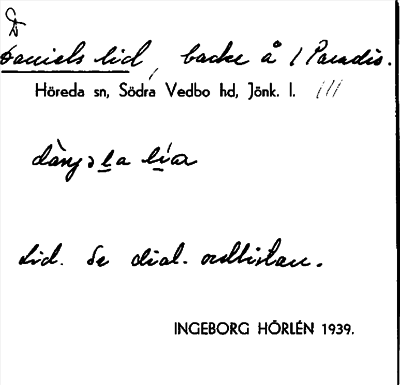 D
Daniels lid, backe å 1 Paradis.
Höreda sn, Södra Vedbo hd, Jönk. l. 111
lid. Se dial. ordlistan.
INGEBORG HÖRLÉN 1939.